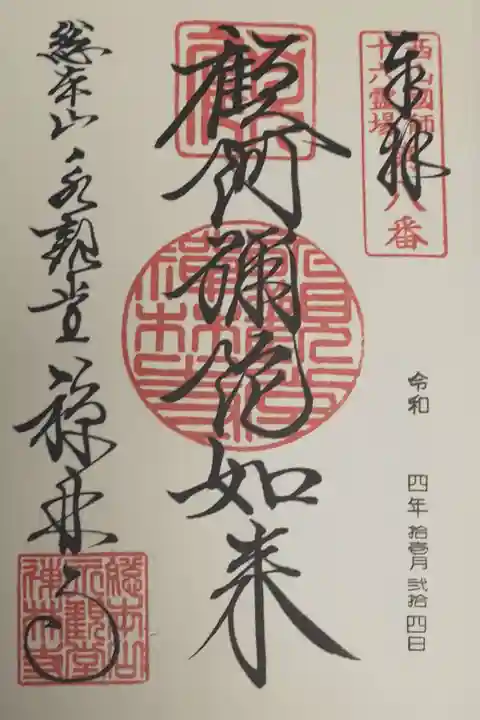 奉拝
西山國師
十六霊場
第八番
令和 四年 拾壱月 弐拾四日
顧阿彌陀如来
総本山 永観堂 禅林寺
総本山
永観堂
禅林寺